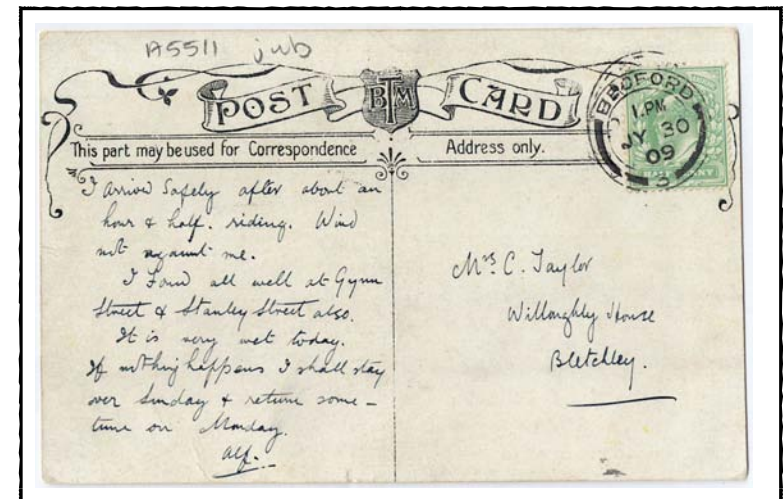 A5511 jub
POST BTM CARD
This part may be used for Correspondence
Address only.
BEDFORD
1.PM
JY 30
09
S
HALF PENNY
I Arrived Safely after about an
hour & half. riding. Wind
not against me.
I Found all well at Gwyn
Street & Stanley Street also.
It is very wet today.
If nothing happens I shall stay
over Sunday & return some-
time on Monday.
Alf.
Mrs C. Taylor
Willoughby House
Bletchley.